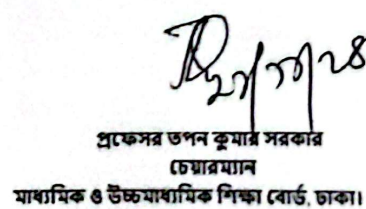 প্রফেসর তপন কুমার সরকার
চেয়ারম্যান
মাধ্যমিক ও উচ্চমাধ্যমিক শিক্ষা বোর্ড, ঢাকা।